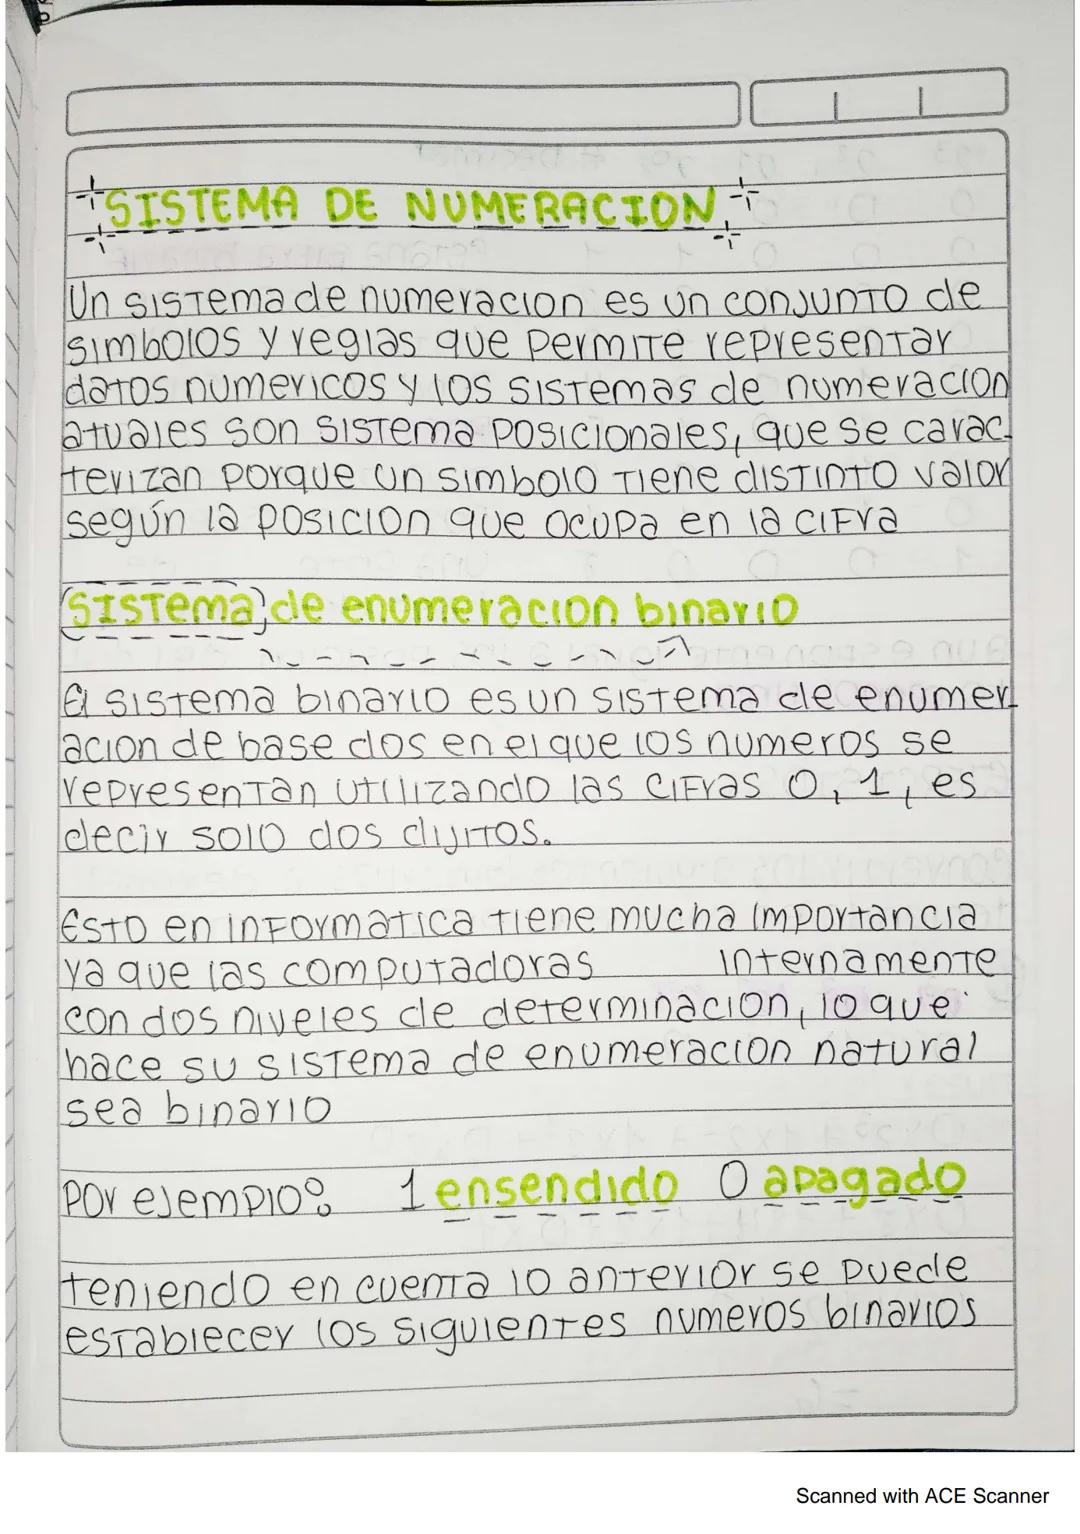 SISTEMA DE NUMERACION
Un sistema de numeracion es un conjunto de
simbolos y reglas que permite representar
datos numericos y los sistemas de numeracion
atuales son sistema posicionales, que se carac-
terizan porque un simbolo tiene distinto valor
según la posicion que ocupa en la cifra
Sistema de enumeracion binario
El sistema binario es un sistema de enumer-
acion de base dos en el que los numeros se
representan utilizando las cifras 0, 1, es
decir solo dos dijitos.
Esto en informatica tiene mucha importancia
ya que las computadoras internamente
con dos niveles de determinacion, lo que
hace su sistema de enumeracion natural
sea binario
Por ejemplo: 1 ensendido 0 apagado
teniendo en cuenta lo anterior se puede
establecer los siguientes numeros binarios
Scanned with ACE Scanner